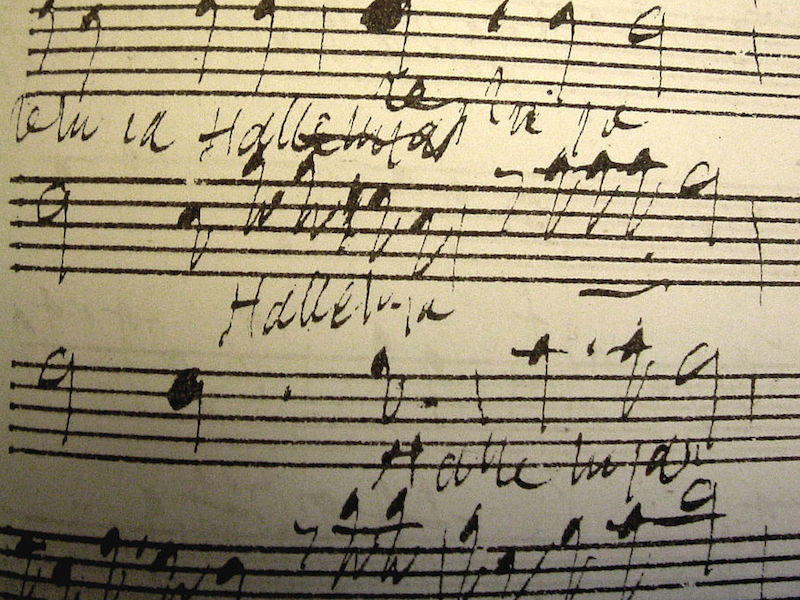 le
lelu ia Halleluja lu ja
Halleluja
Halle lujah